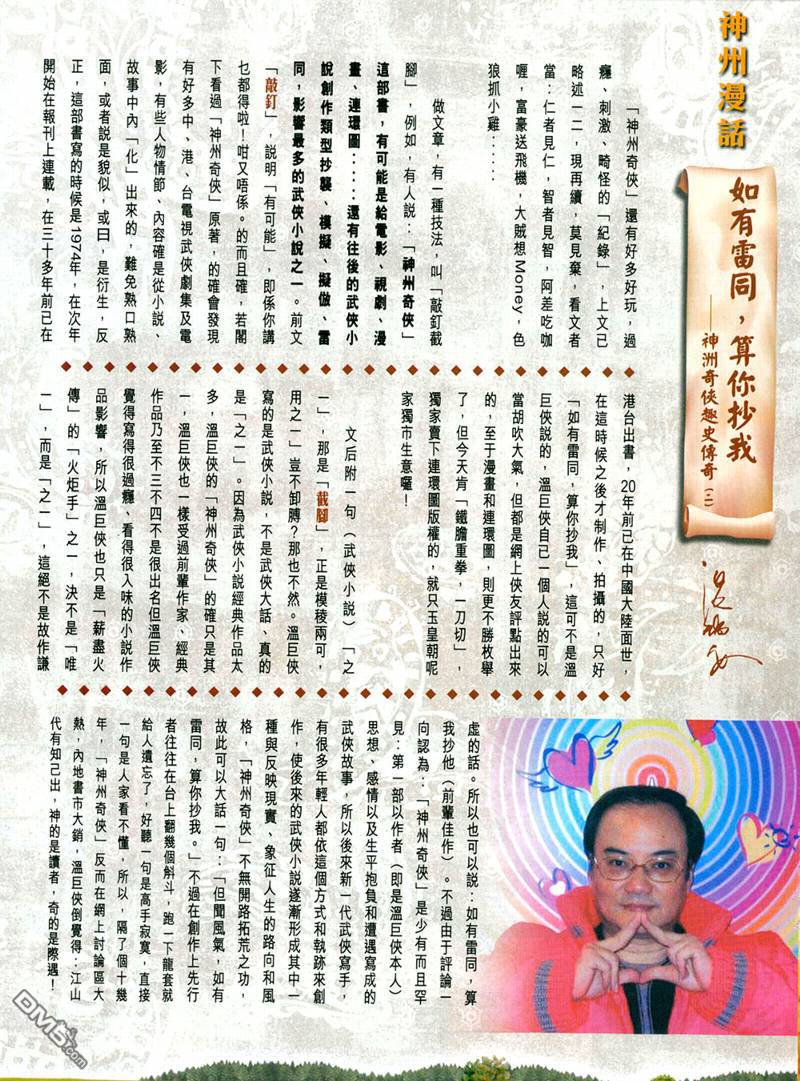 神州漫話
如有雷同，算你抄我
——神洲奇俠趣史傳奇（二）
「神州奇俠」還有好多好玩，過
癮、刺激、畸怪的「紀錄」，上文已
略述一二，現再續，莫見棄，看文者
當：仁者見仁，智者見智，阿差吃咖
喱，富豪送飛機，大賊想Money，色
狼抓小雞‥‥‥
做文章，有一種技法，叫「敲釘截
腳」，例如，有人説：「神州奇俠」
這部書，有可能是給電影、視劇、漫
畫、連環圖‥‥還有往後的武俠小
說創作類型抄襲、模擬、擬倣、雷
同，影響最多的武俠小說之一。前文
「敲釘」，說明「有可能」，即係你講
乜都得啦！咁又唔係。的而且確，若閣
下看過「神州奇俠」原著，的確會發現
有好多中、港、台電視武俠劇集及電
影，有些人物情節、內容確是從小說、
故事中內「化」出來的，難免熟口熟
面，或者説是貌似，或曰，是衍生，反
正，這部書寫的時候是1974年，在次年
開始在報刊上連載，在三十多年前已在
港台出書，20年前已在中國大陸面世，
在這時候之後才制作、拍攝的，只好
「如有雷同，算你抄我」，這可不是溫
巨俠説的，溫巨俠自己一個人説的可以
當胡吹大氣，但都是網上俠友評點出來
的，至于漫畫和連環圖，則更不勝枚舉
了，但今天肯「鐵膽重拳，一刀切」，
獨家賣下連環圖版權的，就只玉皇朝呢
家獨市生意囉！
文后附一句（武俠小説）「之
一」，那是「截腳」，正是模稜兩可，
用之一」豈不卸膊？那也不然。溫巨俠
寫的是武俠小說，不是武俠大話、真的
是「之一」。因為武俠小説經典作品太
多，溫巨俠的「神州奇俠」的確只是其
一，溫巨俠也一樣受過前輩作家、經典
作品乃至不三不四不是很出名但溫巨俠
覺得寫得很過癮、看得很入味的小説作
品影響，所以溫巨俠也只是「薪盡火
傳」的「火炬手」之一，決不是「唯
一」，而是「之一」，這絕不是故作謙
虛的話。所以也可以説：如有雷同，算
我抄他（前輩佳作）。不過由于評論一
向認為：「神州奇俠」是少有而且罕
見：第一部以作者（即是溫巨俠本人）
思想、感情以及生平抱負和遭遇寫成的
武俠故事，所以後來新一代武俠寫手，
有很多年輕人都依這個方式和軌跡來創
作，使後來的武俠小説遂漸形成其中一
種與反映現實、象征人生的路向和風
格，「神州奇俠」不無開路拓荒之功，
故此可以大話一句：「但聞風氣，如有
雷同，算你抄我。」不過在創作上先行
者往往在台上翻幾個斛斗，跑一下龍套就
給人遺忘了，好聽一句是高手寂寞，直接
一句是人家看不懂，所以，隔了個十幾
年，「神州奇俠」反而在網上討論區大
熱，內地書市大銷，溫巨俠倒覺得：江山
代有知己出，神的是讀者，奇的是際遇！
DM5.com